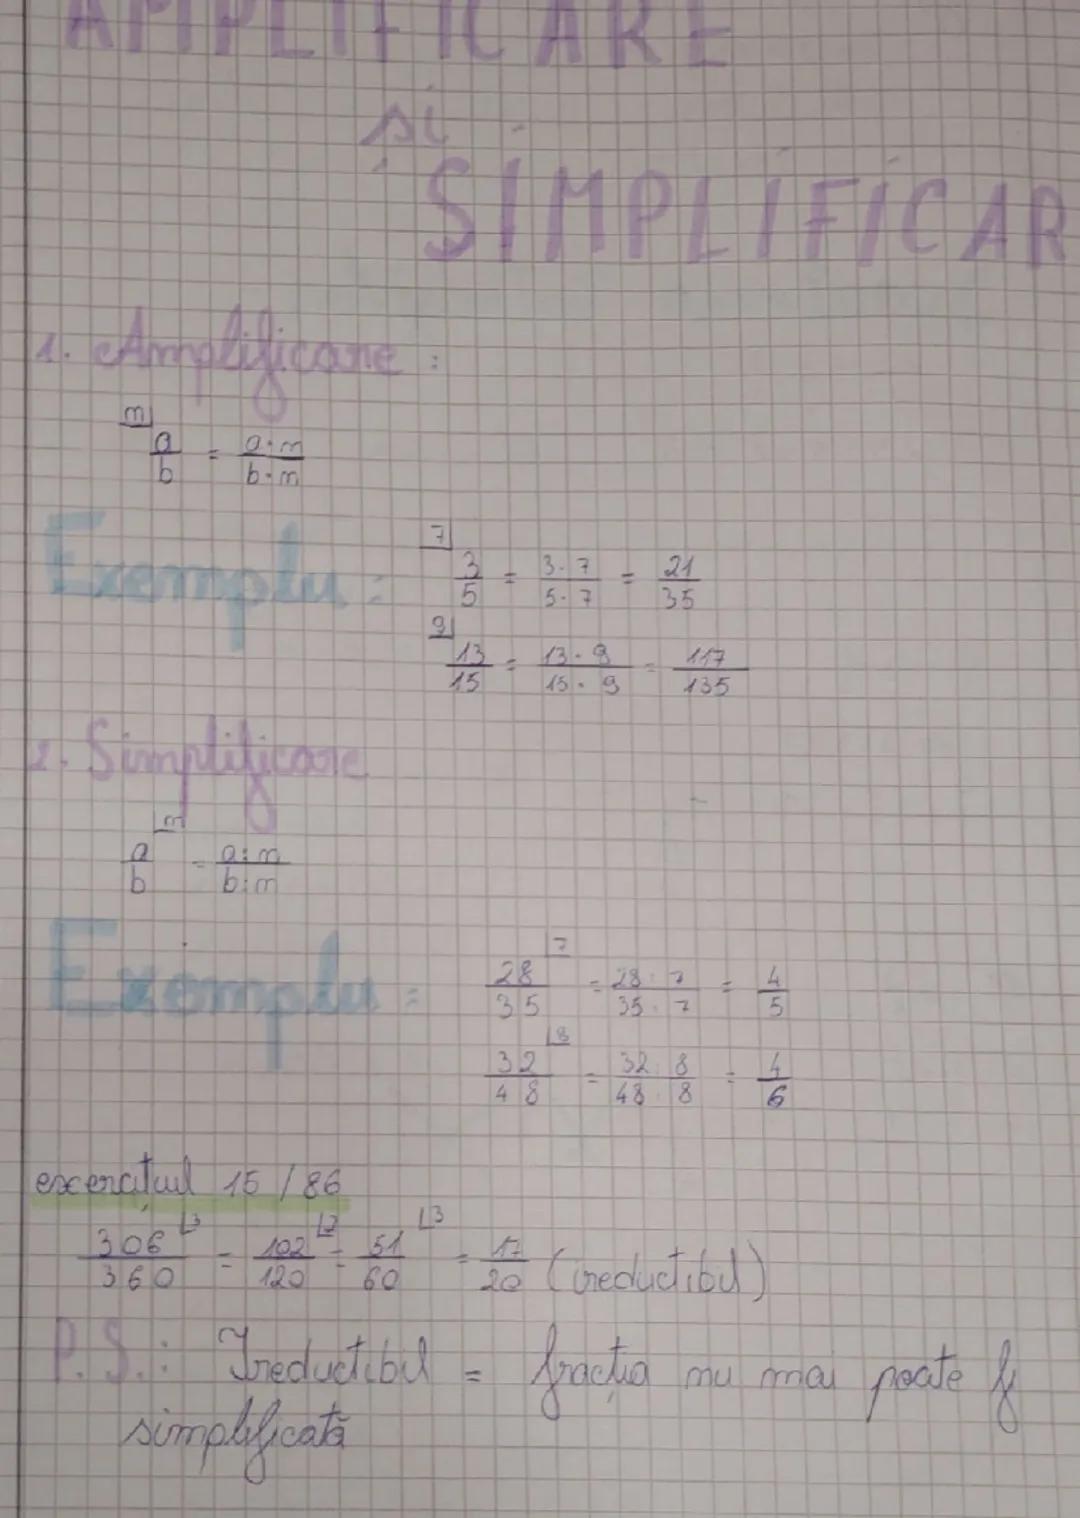 AMPLIFICARE
și
SIMPLIFICAR
1. Amplificare :
m| a/b = a·m/b·m
Exemplu :
7| 3/5 = 3·7/5·7 = 21/35
9| 13/15 = 13·9/15·9 = 117/135
2. Simplificare
a/b |m = a:m/b:m
Exemplu :
28/35 |7 = 28:7/35:7 = 4/5
32/48 |8 = 32:8/48:8 = 4/6
exercițiul 15/86
306/360 |3 = 102/120 |2 = 51/60 |3 = 17/20 (ireductibil)
P.S.: Ireductibil = fracția nu mai poate fi
simplificată